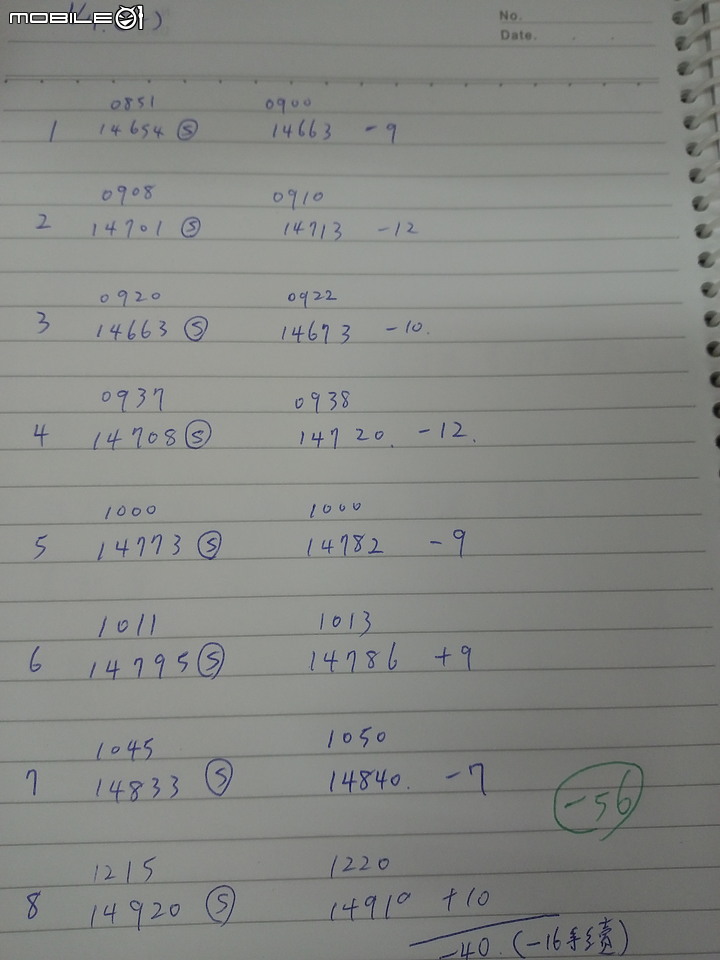 mobile01
No.
Date.
0851 0900
1 14654 Ⓢ 14663 -9
0908 0910
2 14701 Ⓢ 14713 -12
0920 0922
3 14663 Ⓢ 14673 -10.
0937 0938
4 14708 Ⓢ 14720. -12.
1000 1000
5 14773 Ⓢ 14782 -9
1011 1013
6 14795 Ⓢ 14786 +9
1045 1050
7 14833 Ⓢ 14840. -7
-56
1215 1220
8 14920 Ⓢ 14910 +10
-40. (-16手續費)